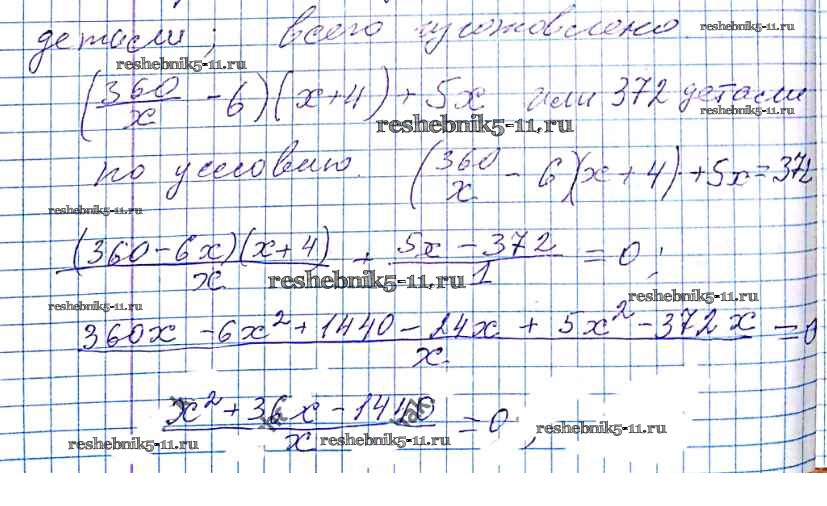 детали; всего изготовлено reshebnik5-11.ru
reshebnik5-11.ru
(360/x - 6)(x+4)+5x или 372 детали
reshebnik5-11.ru
по условию. (360/x - 6)(x+4)+5x=372
reshebnik5-11.ru
(360-6x)(x+4)/x + 5x-372/1 = 0;
reshebnik5-11.ru
reshebnik5-11.ru reshebnik5-11.ru
360x -6x²+1440-24x+5x²-372x/x =0
x²+36x-1440/x =0,
reshebnik5-11.ru reshebnik5-11.ru reshebnik5-11.ru